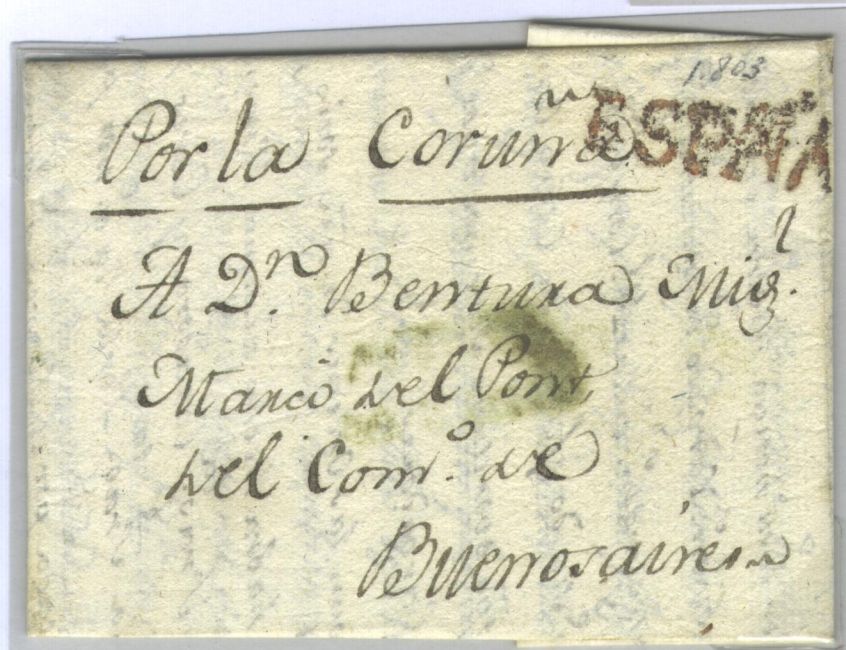 1.803
Por la Coruña ESPAÑA
A Dn. Bentura Migl.
Marcó del Pont,
del Como. de
Buenosaires